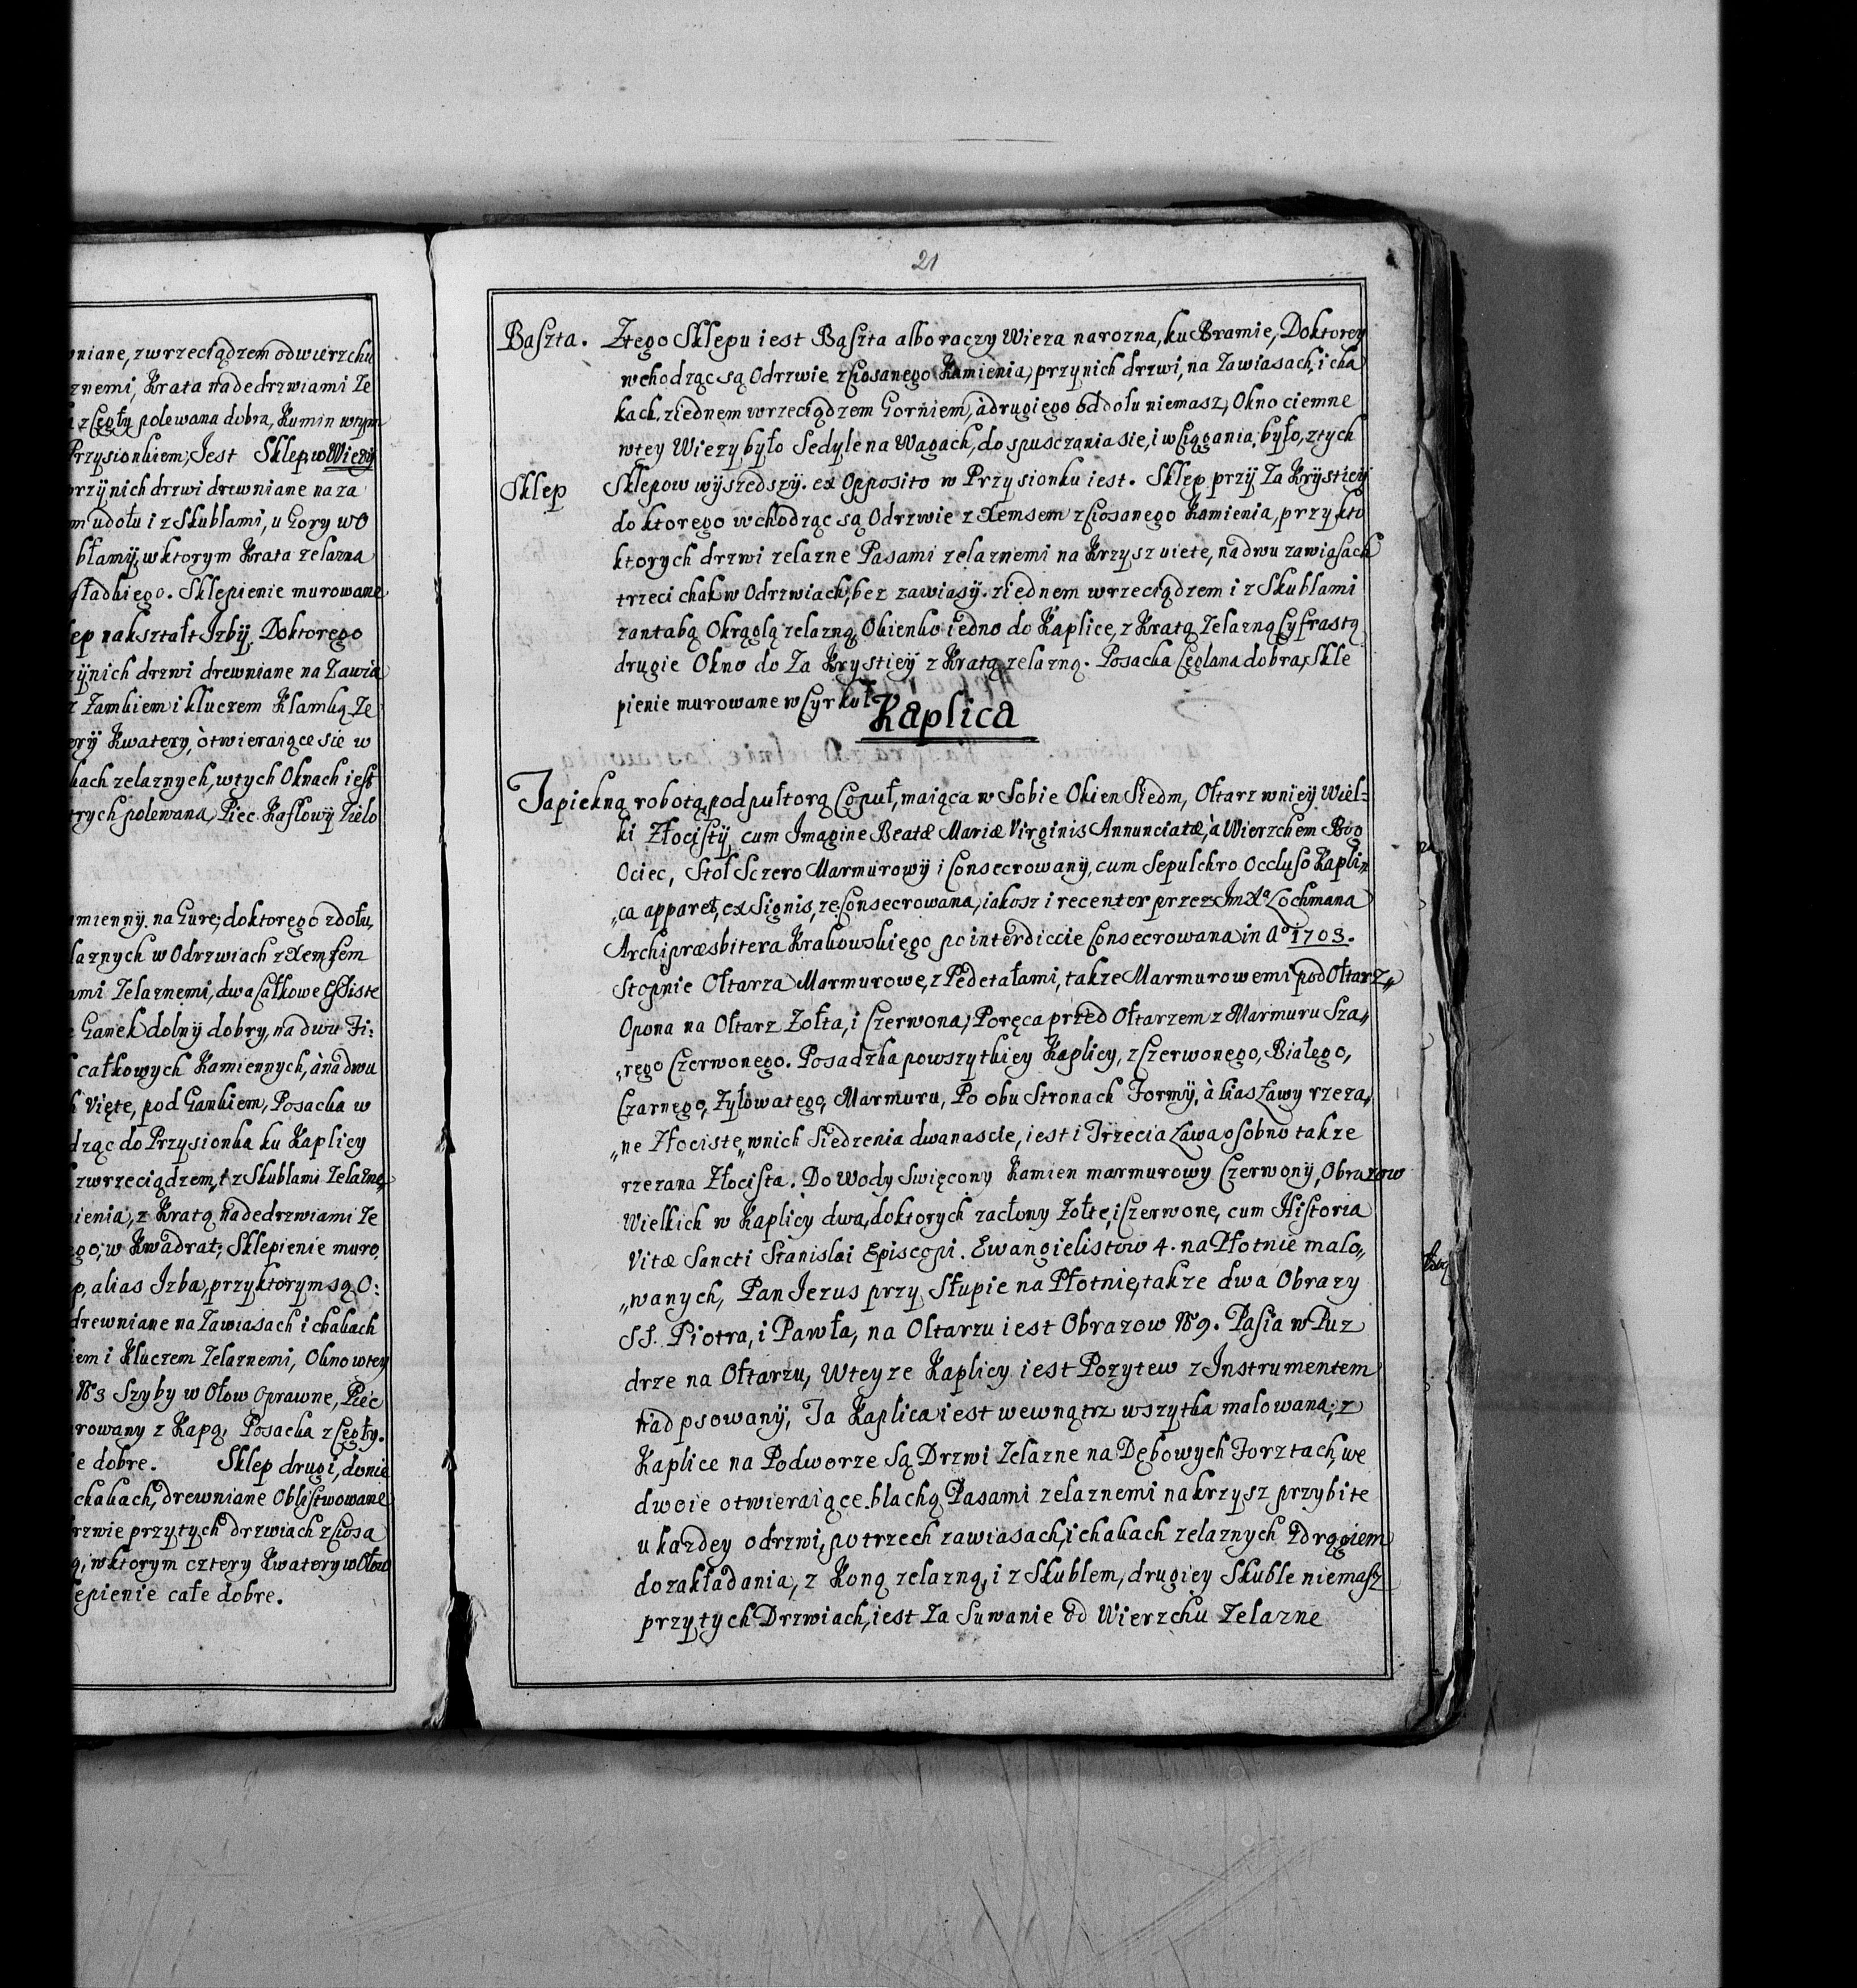 wniane, zwrzeciądzem odwierzchu
znemi, Krata nadedrzwiami Ze
z Cegły polewana dobra, Kumin wtym
Przysionkiem; Jest Sklep w Wiezy
przÿnich drzwi drewniane na za
m udołu i z Skublami, u Gory wo
błamÿ, w ktorym Krata zelazna
sładkiego. Sklepienie murowane
lep nakształt Jzbÿ, Doktorego
zÿnich drzwi drewniane na Zawia
z Zamkiem i kluczem Klamką Ze
erÿ Kwatery, òtwieraiące sie w
kach zelaznych, wtych Oknach iest
trych polewana, Piec Kaflowÿ Zielo
amiennÿ. na Gure; doktorego zdołu,
laznych w Odrzwiach z Xemsem
ami Zelaznemi, dwa Całkowe
Ganek dolnÿ dobry, na dwu Fi:
całkowych Kamiennych, àna dwu
Vięte, pod Gankiem, Posacka w
dząc do Przysionka ku Kaplicy
zwrzeciądzem, i z Skublami Zelazne,
ienia, z Kratą nadedrzwiami Ze
ego; w Kwadrat; Sklepienie muro,
p, alias Jzba, przyktorym są O:
drewniane na Zawiasach i chakach
iem i Kluczem Zelaznemi, Okno wtey
N⁰3 Szyby w Ołow Oprawne, Piec
rowany z Kapą, Posacka z Cegły.
e dobre. Sklep drugi, donie
chakach, drewniane Oblistwowane
rzwie przytych drzwiach z Ciosa
ą, wktorym cztery Kwatery w Ołow
epienie całe dobre.
21
Baszta. Ztego Sklepu iest Baszta alboraczy Wieza narozna, ku Bramie, Doktorey
wchodząc są Odrzwie z Ciosanego Kamienia, przynich drzwi, na Zawiasach, i cha
kach, ziednem wrzeciądzem Gorniem, àdrugiego oddołu niemasz, Okno ciemne
wtey Wiezy było Sedyle na Wagach, do spusczania sie, i wciągania, było, ztych
Sklep Sklepow wÿszedszÿ. ex Opposito w Przysionku iest. Sklep przÿ Za Krystieÿ
do ktorego wchodząc są Odrzwie z Xemsem z Ciosanego Kamienia, przy kto
ktorych drzwi zelazne Pasami zelaznemi na Krzysz viete, na dwu zawiasach
trzeci chak w Odrzwiach, bez zawiasÿ. ziednem wrzeciądzem i z Skublami
zantabą Okrągłą zelazną, Okienko iedno do Kaplice, z Kratą Zelazną Cyfrastą
drugie Okno do Za Krystieÿ z Kratą zelazną. Posacka Ceglana dobra, Skle
pienie murowane w Cyrkuł.
Kaplica
Ja piekną robotą, pod pułtorą Coput, maiąca w Sobie Okien Siedm, Ołtarz wnieÿ Wiel=
ki Złocistÿ, cum Jmagine Beatæ Mariæ Virginis Annunciatæ, à Wierzchem Bog
Ociec, Stol Sczero Marmurowÿ i Consecrowanÿ, cum Sepulchro Occluso Kapli„
„ca apparet, ex Signis, ze Consecrowana, iakosz i recenter przez Jm Xᵃ Lochmana
Archipræsbitera Krakowskiego po interdiccie Consecrowana in A⁰ 1703.
Stopnie Ołtarza Marmurowe, z Pedetałami, takze Marmurowemi pod Ołtarz„
Opona na Ołtarz Zołta, i Czerwona, Poręca przed Ołtarzem z Marmuru Sza„
„rego Czerwonego. Posadzka powszytkiey Kaplicy, z Czerwonego, Białego,
Czarnego, Zyłowatego, Marmuru, Po obu Stronach Formÿ, à bias Ławy rzeza„
„ne Złociste, wnich Siedzenia dwanascie, iest i Trzecia Ława osobno takze
rzezana Złocista. Do Wody Swięcony Kamien marmurowy Czerwonÿ, Obrazow
Wielkich w Kaplicy dwa, doktorych zacłony Zołte, i Czerwone, cum Historia
Vitæ Sancti Stanislai Episcopi. Ewangielistow 4. na Płotnie malo„
„wanych, Pan Jezus przy Słupie na Płotnie, takze dwa Obrazy
SS. Piotra, i Pawła, na Oltarzu iest Obrazow N⁰9. Pasia w Puz
drze na Ołtarzu, Wteyze Kaplicy iest Pozytew z Jnstrumentem
nad psowanÿ, Ta Kaplica iest wewnątrz wszytka malowana, z
Kaplice na Podworze Są Drzwi Zelazne na Dębowych Forsztach, we
dwoie otwieraiące. blachą Pasami zelaznemi nakrzysz przybite
u kazdey odrzwi, po trzech zawiasach, i chakach zelaznych Zdrągiem
dozakładania, z Koną zelazną, i z Skublem, drugiey Skuble niemasz
przytych Drzwiach, iest Za Suwanie Od Wierzchu Zelazne